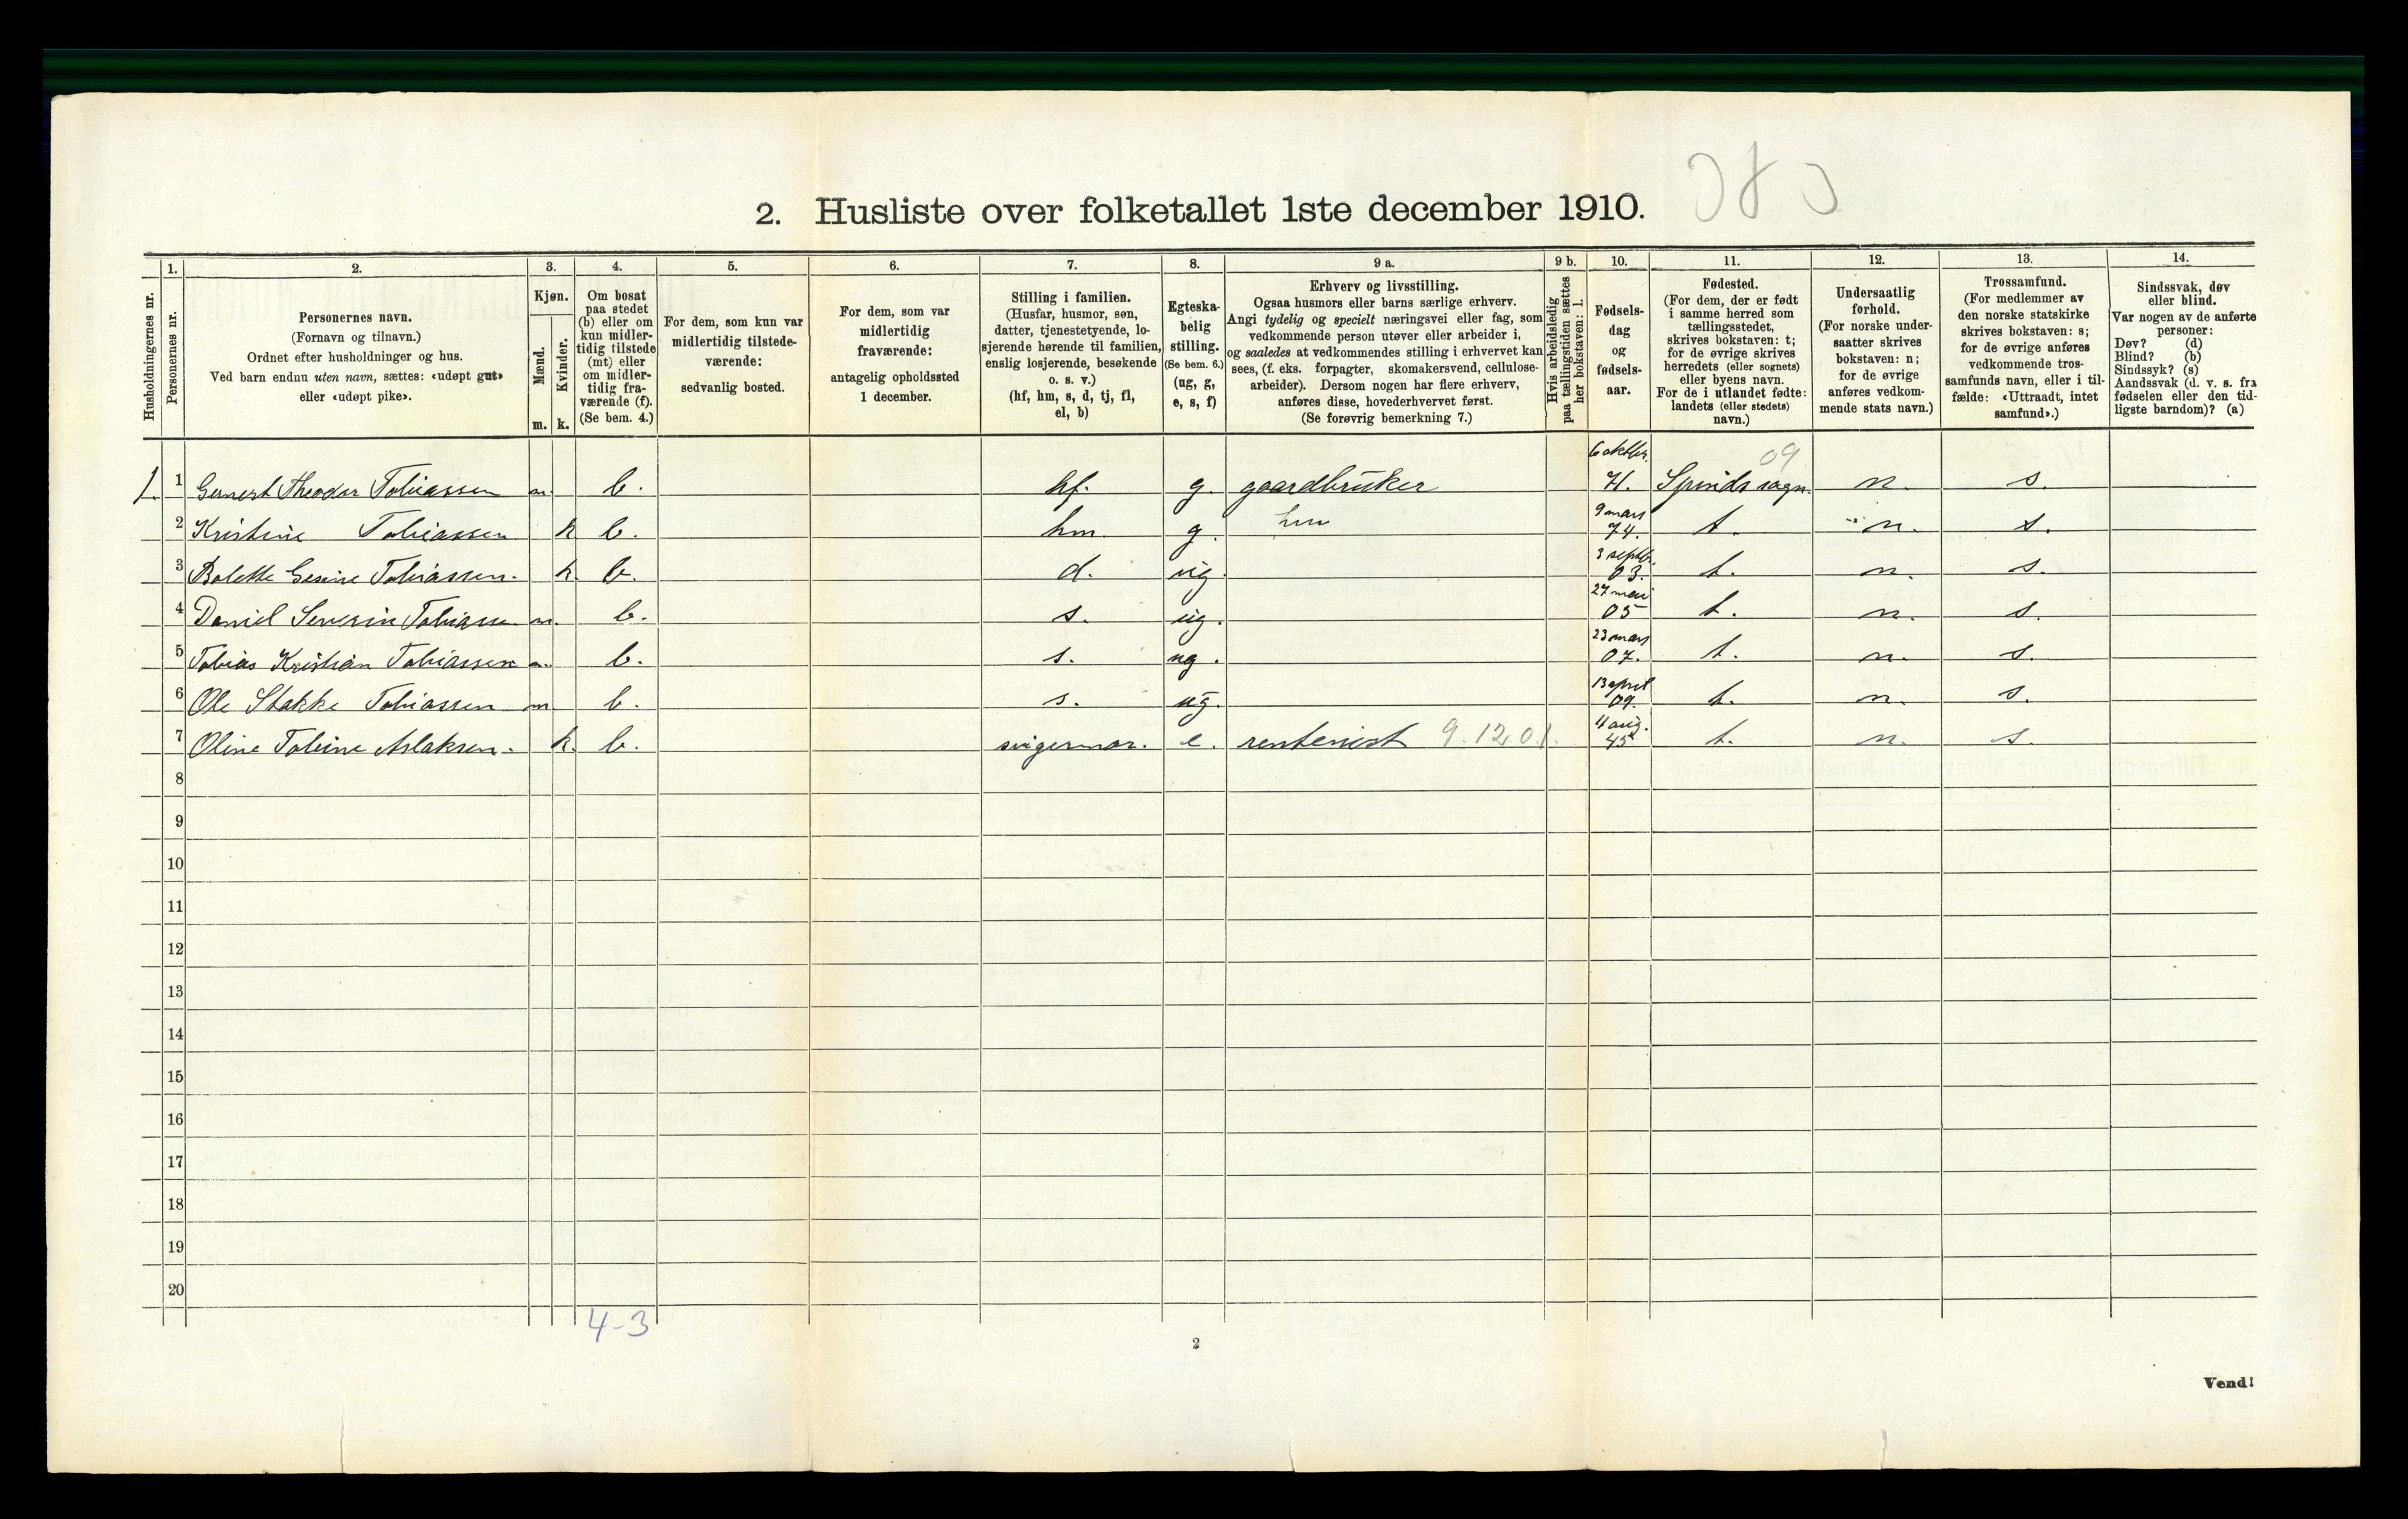 2. Husliste over folketallet 1ste december 1910.
Husholdningernes nr.
1. Personernes nr.
2.
Personernes navn.
(Fornavn og tilnavn.)
Ordnet efter husholdninger og hus.
Ved barn endnu uten navn, sættes: «udøpt gut»
eller «udøpt pike».
3.
Kjøn.
Mænd. Kvinder.
m. k.
4.
Om bosat
paa stedet
(b) eller om
kun midler-
tidig tilstede
(mt) eller
om midler-
tidig fra-
værende (f).
(Se bem. 4.)
5.
For dem, som kun var
midlertidig tilstede-
værende:
sedvanlig bosted.
6.
For dem, som var
midlertidig
fraværende:
antagelig opholdssted
1 december.
7.
Stilling i familien.
(Husfar, husmor, søn,
datter, tjenestetyende, lo-
sjerende hørende til familien,
enslig losjerende, besøkende
o. s. v.)
(hf, hm, s, d, tj, fl,
el, b)
8.
Egteska-
belig
stilling.
(Se bem. 6.)
(ug, g,
e, s, f)
9 a.
Erhverv og livsstilling.
Ogsaa husmors eller barns særlige erhverv.
Angi tydelig og specielt næringsvei eller fag, som
vedkommende person utøver eller arbeider i,
og saaledes at vedkommendes stilling i erhvervet kan
sees, (f. eks. forpagter, skomakersvend, cellulose-
arbeider). Dersom nogen har flere erhverv,
anføres disse, hovederhvervet først.
(Se forøvrig bemerkning 7.)
9 b.
Hvis arbeidsledig
paa tællingstiden sættes
her bokstaven: l.
10.
Fødsels-
dag
og
fødsels-
aar.
11.
Fødested.
(For dem, der er født
i samme herred som
tællingsstedet,
skrives bokstaven: t;
for de øvrige skrives
herredets (eller sognets)
eller byens navn.
For de i utlandet fødte:
landets (eller stedets)
navn.)
12.
Undersaatlig
forhold.
(For norske under-
saatter skrives
bokstaven: n;
for de øvrige
anføres vedkom-
mende stats navn.)
13.
Trossamfund.
(For medlemmer av
den norske statskirke
skrives bokstaven: s;
for de øvrige anføres
vedkommende tros-
samfunds navn, eller i til-
fælde: «Uttraadt, intet
samfund».)
14.
Sindssvak, døv
eller blind.
Var nogen av de anførte
personer:
Døv? (d)
Blind? (b)
Sindssyk? (s)
Aandssvak (d. v. s. fra
fødselen eller den tid-
ligste barndom)? (a)
1. 1 Theodor Tobiassen m. b. hf. g. gaardbruker 6 oktbr. 71. Spinds sogn. 09 n. s.
2 Kristine Tobiassen k b. hm. g. hm 9 mars 74. t. n. s.
3 Bolette Gesine Tobiassen. k. b. d. ug. 3 septbr. 03. t. n. s.
4 Daniel Severin Tobiassen m. b. s. ug. 27 mai 05 t. n. s.
5 Tobias Kristian Tobiassen m. b. s. ug. 23 mars 07. t. n. s.
6 Ole Stakke Tobiassen m b. s. ug. 13 april 09. t. n. s.
7 Oline Tobine Aslaksen. k. b. svigermor. e. rentenist 9.12.01. 4 aug. 45 t. n. s.
8
9
10
11
12
13
14
15
16
17
18
19
20
4-3
2
Vend!